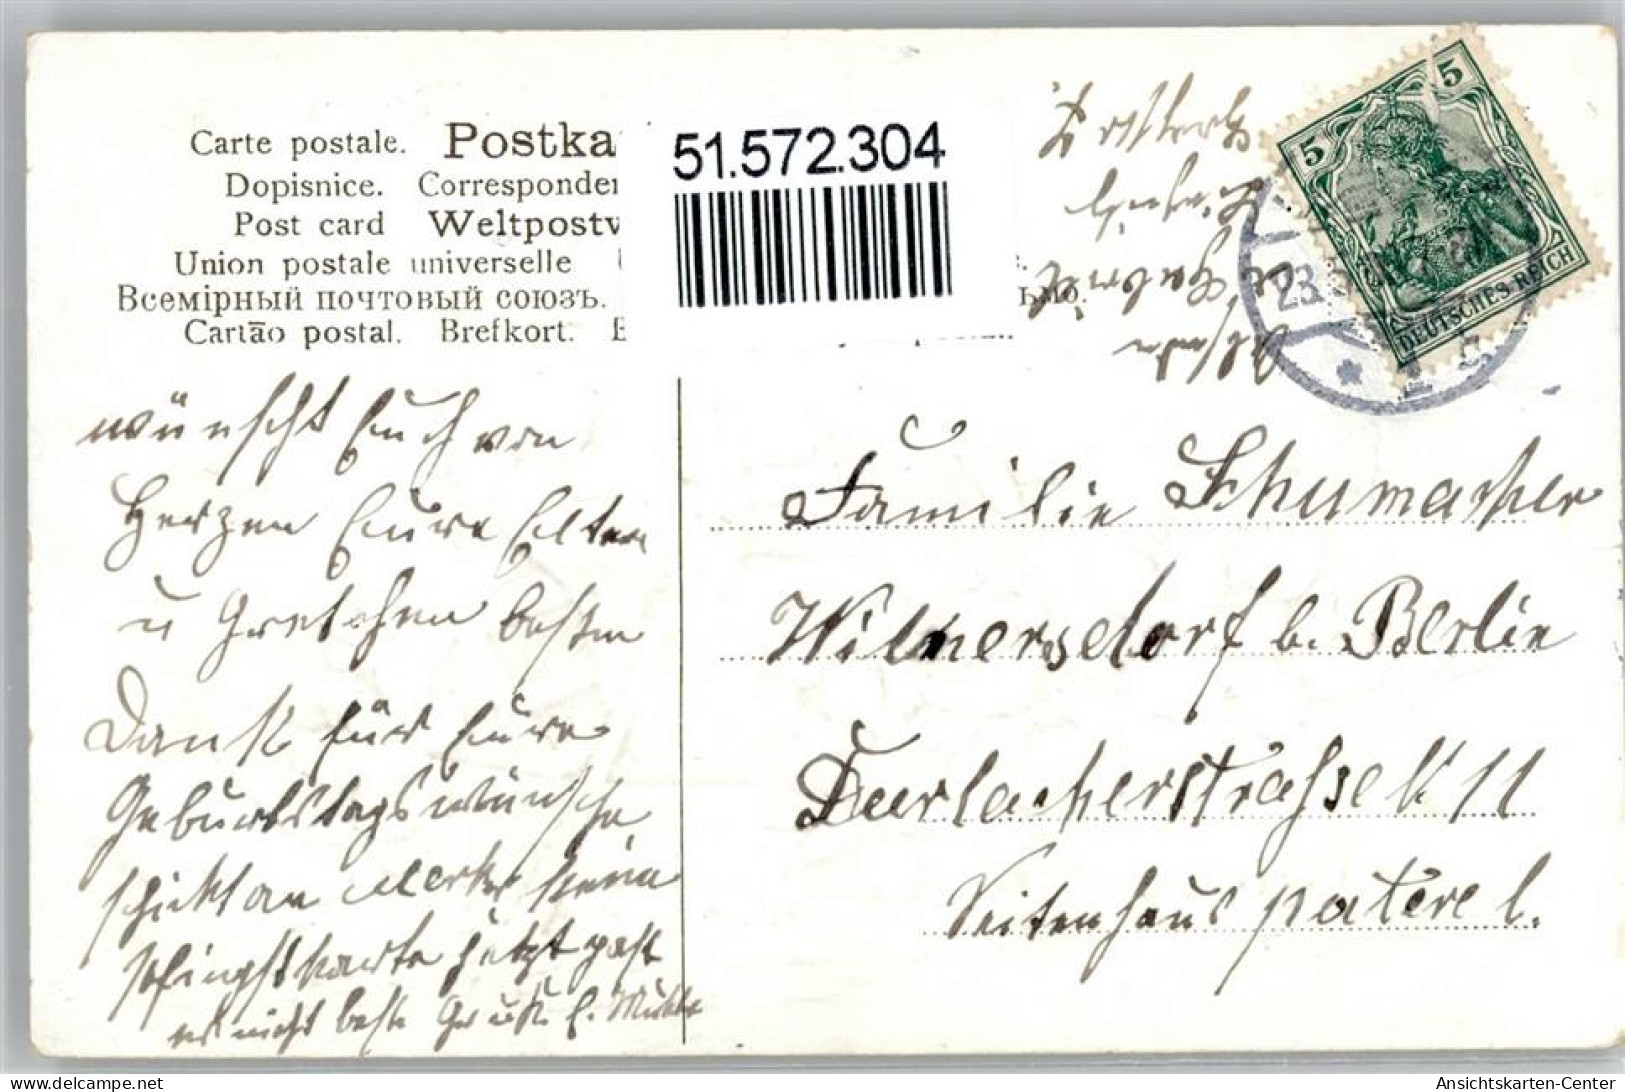 Carte postale. Postka
Dopisnice. Corresponde
Post card Weltpostv
Union postale universelle
Всемірный почтовый союзъ.
ьмо.
Cartão postal. Brefkort. E
51.572.304
5 5
DEUTSCHES REICH
23.
wünscht Euch von
Herzen Eure Eltern
u Gretchen besten
Dank für Eure
Geburtstagswünsche
schickt an keine
Pfingstkarte jetzt past
es nicht beste Gruß E. Mutter
Familie Schumacher
Wilmersdorf b. Berlin
Durlacherstraße N 11
Seitenhaus patere l.
Ansichtskarten-Center